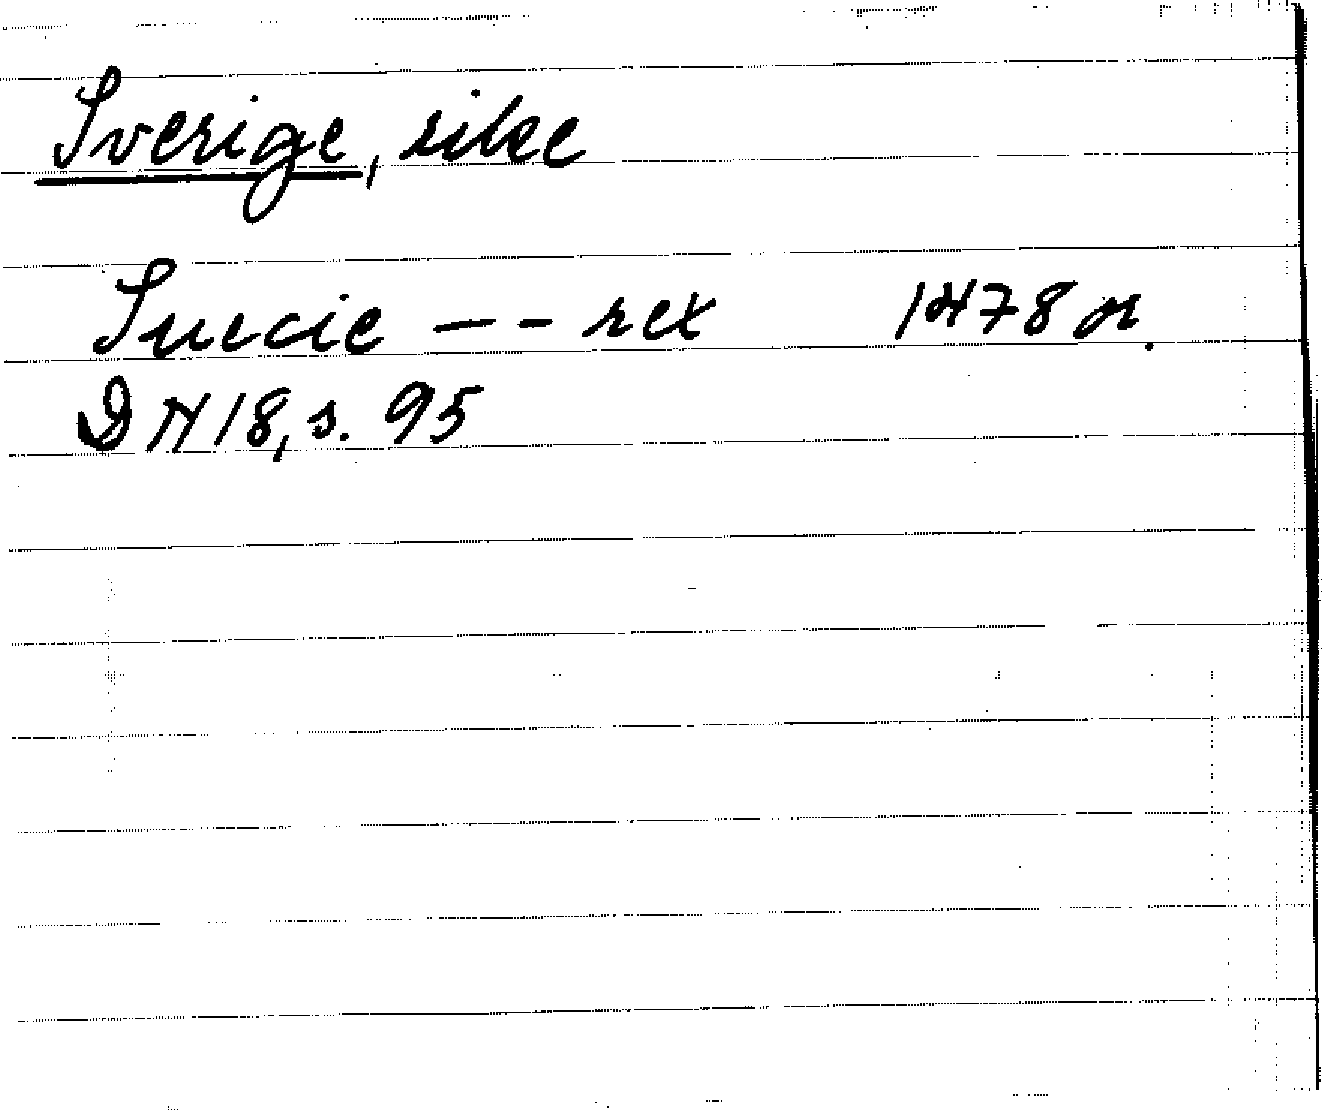 Sverige, rike
Suecie -- rex 1478 or.
DN 18, s. 95